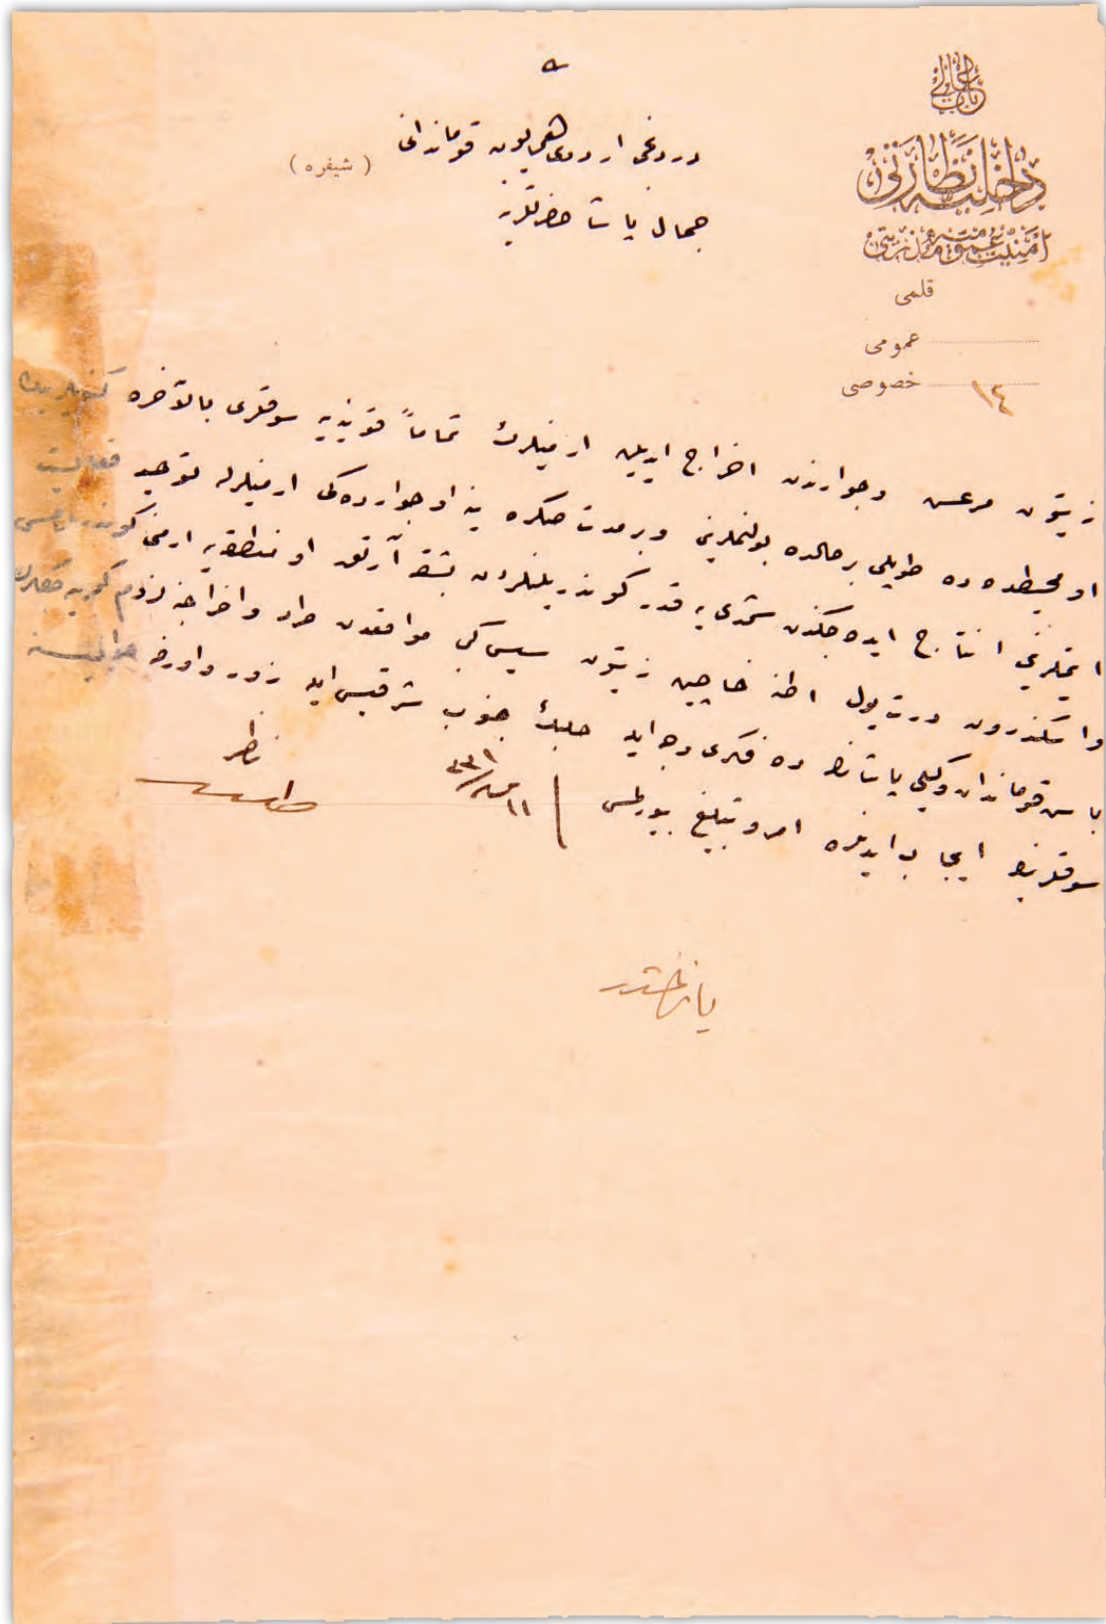 باب عالى
داخليه نظارتى
امنيت عموميه مديريتى
قلمى
عمومى
خصوصى ١٤
دردنجى اردوى همايون قوماندانى
( شيفره )
جمال پاشا حضرتلرينه
زيتون مرعش وجوارندن اخراج ايديلن ارمنيلرك تماماً قونيه يه سوقلرى بالآخره كنديلرينك
او محيطده ده طوپلى بر حالده بولنملرينى وبر مدت صكره ينه او جوارده كى ارمنيلرله توحيد فعاليت
ايتملرينى انتاج ايده جكندن شمدى يه قدر كوندريلنلردن بشقه آرتق او منطقه يه ارمنى كوندرلمامسى
واسكندرون درت يول اطنه حاچين زيتون سيس كبى مواقعدن طرد واخراجنه لزوم كوريله جكلرك
باش قوماندان وكيلى پاشانك ده فكرى وجهله حلبك جنوب شرقيسى ايله زور واورفه حواليسنه
سوقلرينك ايجاب ايدنلره امر وتبليغ بيورلمسى
١١ نيسان ٣٣١
ناظر
طلعت
يازلمشدر